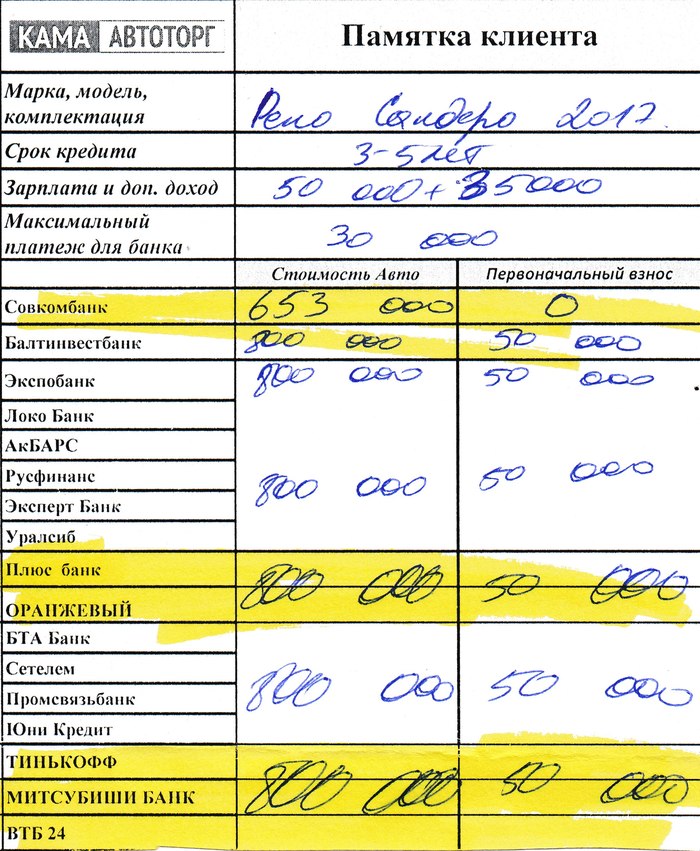 КАМА АВТОТОРГ Памятка клиента
Марка, модель,
комплектация Рено Сандеро 2017
Срок кредита 3-5 лет
Зарплата и доп. доход 50 000 + 35000
Максимальный
платеж для банка 30 000
Стоимость Авто Первоначальный взнос
Совкомбанк 653 000 0
Балтинвестбанк 800 000 50 000
Экспобанк 800 000 50 000
Локо Банк
АкБАРС
Русфинанс 800 000 50 000
Эксперт Банк
Уралсиб
Плюс банк 800 000 50 000
ОРАНЖЕВЫЙ
БТА Банк
Сетелем
Промсвязьбанк 800 000 50 000
Юни Кредит
ТИНЬКОФФ
МИТСУБИШИ БАНК 800 000 50 000
ВТБ 24